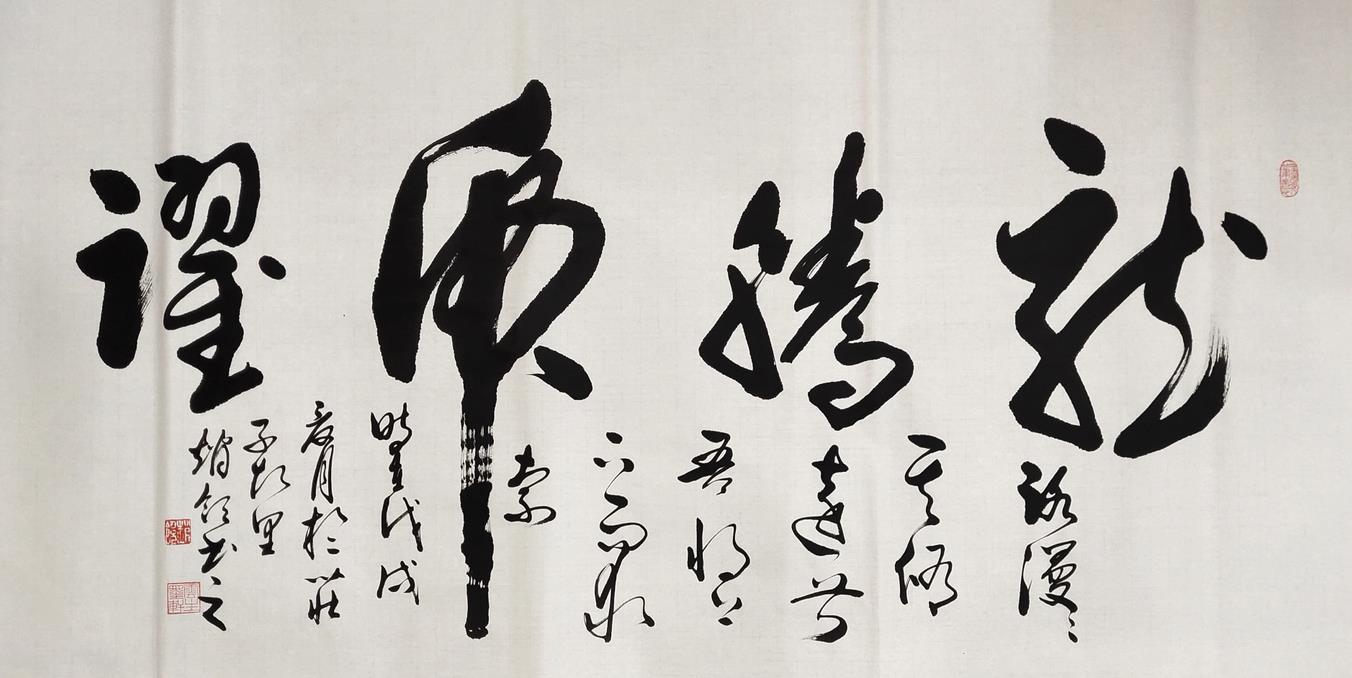 龍騰虎躍
路漫〻
其脩
遠兮
吾將上
下而求
索
時在戊戌
夏月於莊
子故里
書之